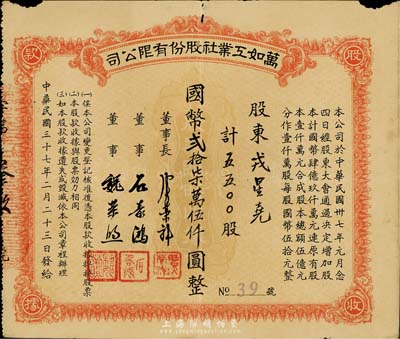 萬如工業社股份有限公司
股
款
收
據
本公司於中華民國卅七年元月念
四日經股東大會通過決定增加股
本計國幣肆億玖仟萬元連原有股
本壹仟萬元合成股本總額伍億元
分作壹仟萬股每股國幣伍拾元整
股東戎星堯
計五五〇〇股
國幣貳拾柒萬伍仟圓整
董事長
董事 石
董事 魏
(一)俟本公司變更登記核准後憑本股款收據換掉股票
(二)本股款收據與股票効力相同
(三)如本股款收據遺失或毀滅依本公司章程辦理
中華民國三十七年二月二十三日發給
No 39 號